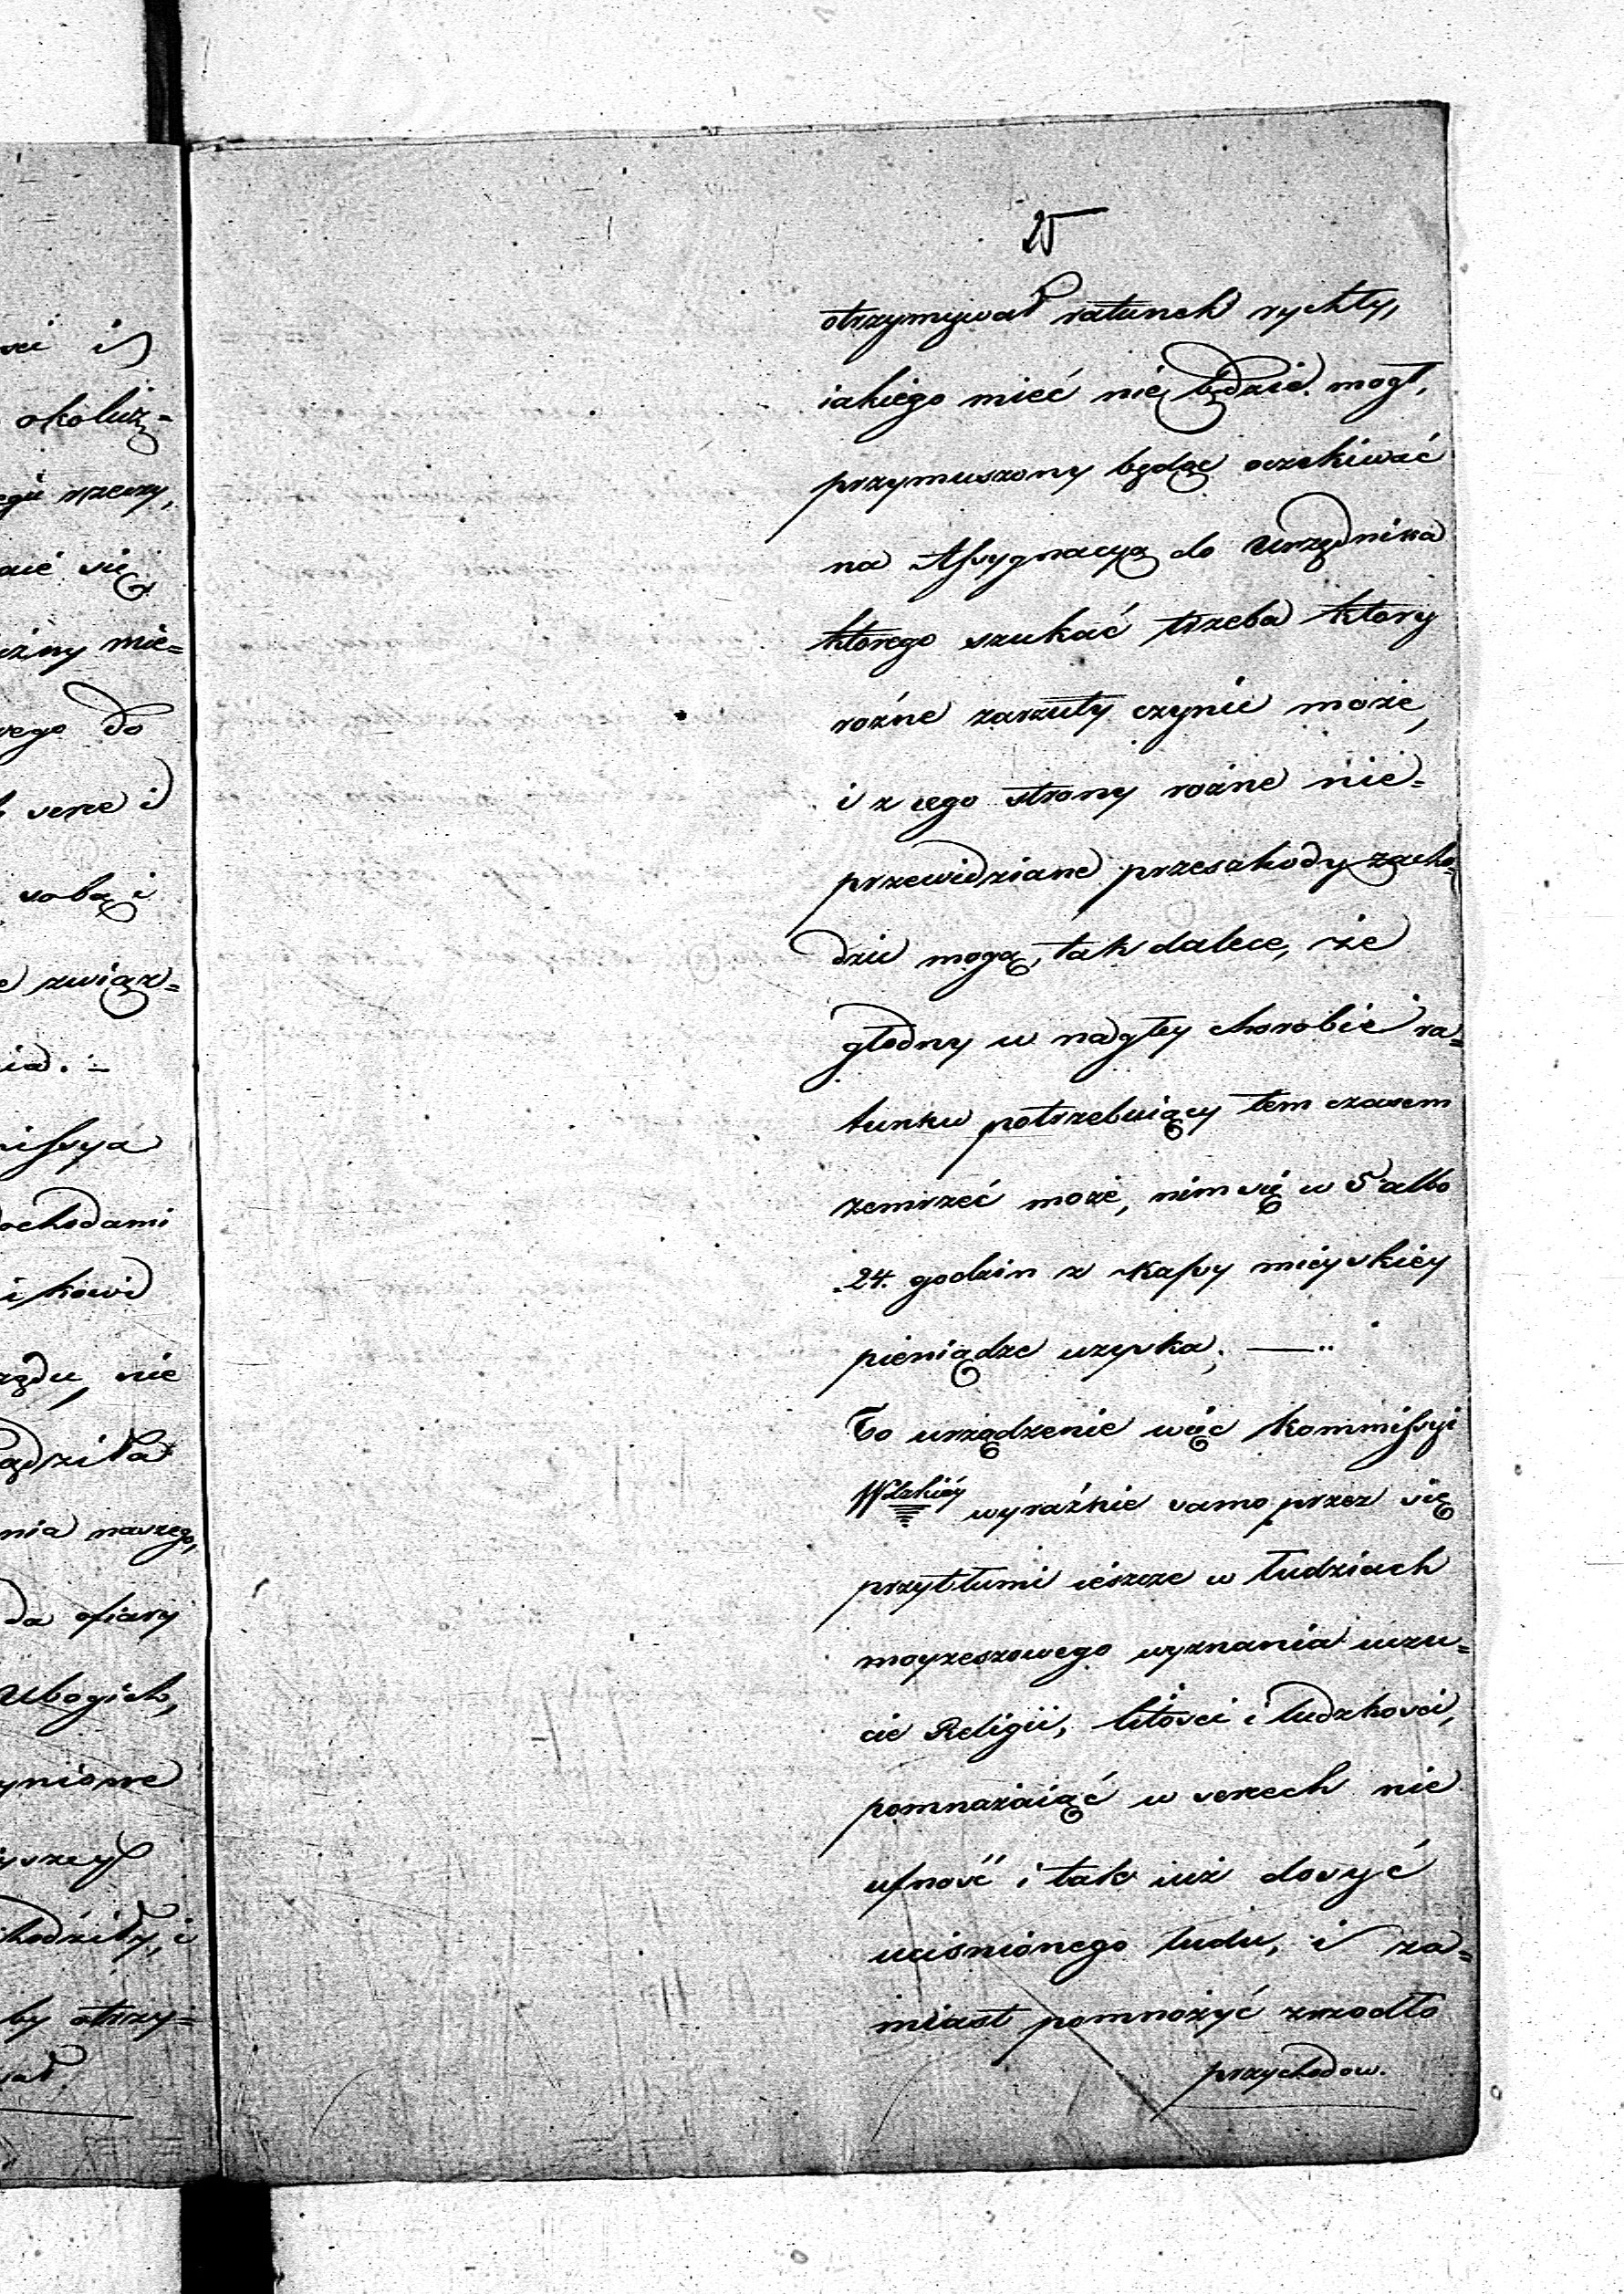 25
otrzymywał ratunek rychły,
iakiego mieć nie będzie mogł,
przymuszony będąc oczekiwać
na Assygnacyą do Urzędnika
ktorego szukać trzeba ktory
rożne zarzuty czynić może,
i z iego strony rożne nie=
przewidziane przeszkody zacho=
dzić mogą, tak dalece, że
głodny w nagłey chorobie ra=
tunku potrzebuiący tem czasem
zemrzeć może, nim się w 5 albo
24. godzin z Kassy mieyskiey
pieniądze uzyska. —
To urządzenie więc Kommissyi
Wdzkiéy wyraźnie samo przez się
przytłumi ieszcze w ludziach
moyzeszowego wyznania uczu=
cie Religii, litości i ludzkości,
pomnażaiąć w sercech nie
ufność i tak iuż dosyć
uciśnionego ludu, i za=
miast pomnożyć zrzodło
przychodow.
ści i
okoliczᶏ=
rzeczy,
się
mie=
do
serce i
sobą i
związ=
missya
dochodami
rządu, nie
nia naszego,
da ofiary
Ubogich,
by otrzy=